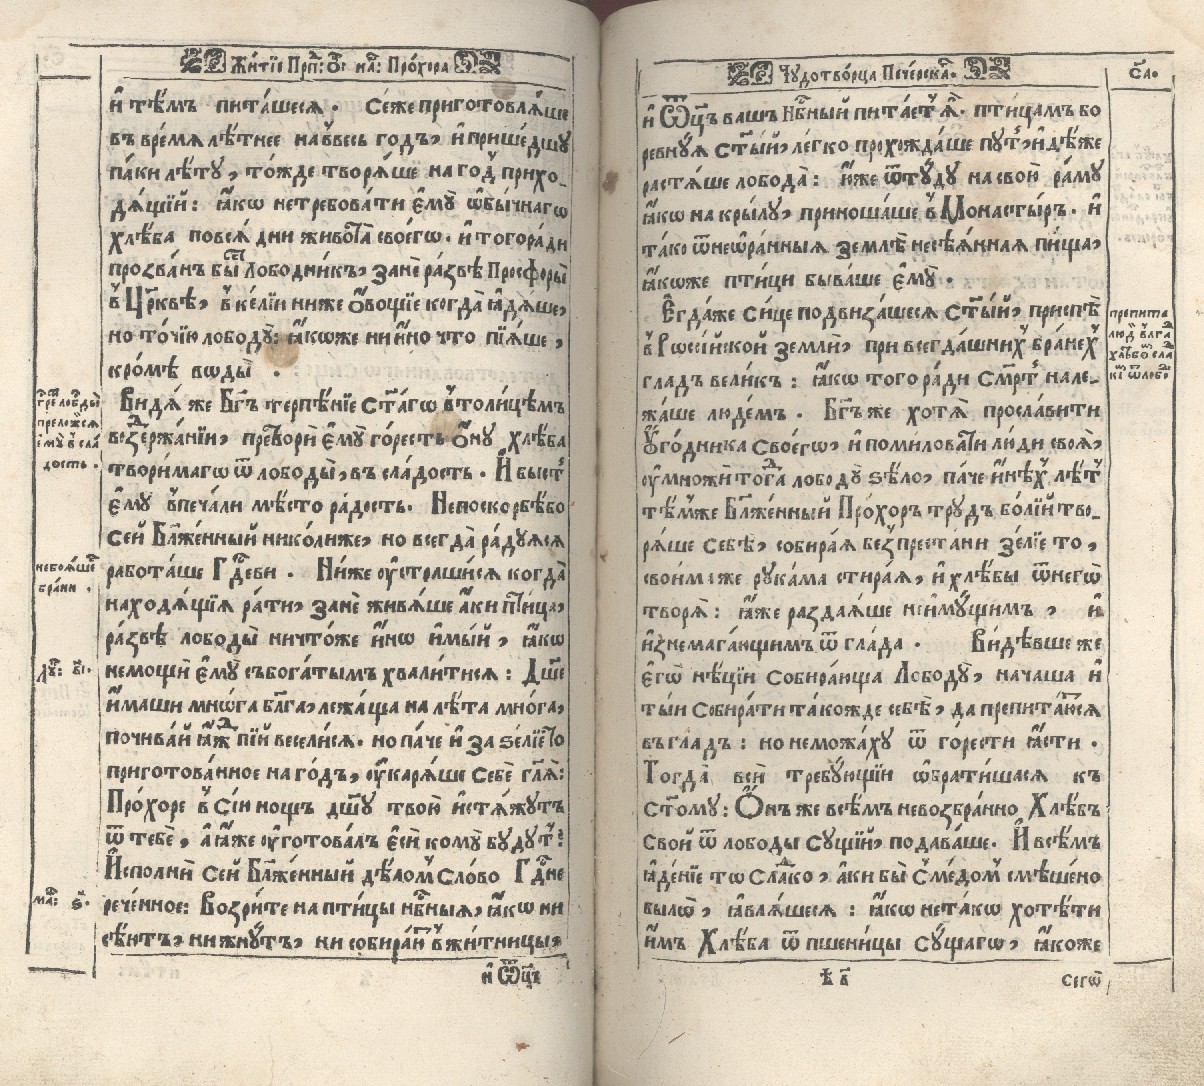 Жи́тїе Прп҇: Ѻ҆: на́: Про́хора
и҆ тѣ́мъ пита́шесѧ . Се́же приготовлѧ́ше
въ вре́мѧ лѣ́тнее на ѹ҆ весь годъ, и҆ прише́дшу
па́ки лѣ́ту, то́жде творѧ́ше на год̾ прихо_
дѧ́щїй : ꙗ҆́кѡ нетре́бовати є҆му̀ ѡ҆бы́чнагѡ
хлѣ́ба повсѧ̀ дни живота̀ своегѡ̀ . и҆ тогора́ди
прозва́нъ бы́с Лободни́къ, занѐ ра́звѣ Просфоры̀
в̾ Цр҃квѣ, в̾ ке́лїи ниже ѻ҆во́щїе когда̀ ꙗ҆дѧ́ше,
но то́чїю лободу̀: ꙗ҆́коже ни и҆́но что пїѧ́ше ,
кро́мѣ воды̀ .
Ви́дѧ же Бг҃ъ терпѣ́нїе Ст҃а́гѡ в̾толи́цѣмъ
воздержа́нїи, претворѝ є҆му̀ го́ресть ѻ҆́ну хлѣ́ба
твори́магѡ ѿ лободы̀, въ сла́дость . И҆ бы́ст
є҆му в̾печа́ли мѣ́сто ра́дость. Непоскорбѣ́бо
сей Бл҃же́нный нико́лиже, но всегда̀ ра́дуѧсѧ
рабо́таше Гд҇еви . Ни́же ѹ҆страши́сѧ когда̀
находѧ́щїѧ ра́ти, занѐ живѧ́ше а҆́ки пти́ца,
ра́звѣ лободы̀ ничто́же и҆́нѡ и҆мы́й, ꙗ҆́кѡ
немощѝ є҆му̀ съ бога́тымъ хвали́тисѧ : Дш҃е
и҆́маши мнѡ́га бл҃га, лежа́ща на лѣ́та мно́га,
почива́й ꙗ҆ждъ пїй весели́сѧ. но па́че и҆ за ѕе́лїе то
приготова́нное на го́дъ, ѹ҆карѧ́ше Себѐ гл҃ѧ:
Про́хоре в̾ сїѝ нощъ дш҃у твою̀ и҆стѧ́жутъ
ѿ тебѐ , а҆ ꙗ҆̀же ѹ҆гото́валъ є҆сѝ кому̀ бу́дут̾?
И҆спо́лнѝ Сей Бл҃же́нный дѣ́лом̾ Сло́во Гд҇не
рече́нное: Возри́те на пти́цы нб҇ныѧ, ꙗ҆́кѡ ни
сѣ́ютъ, ни жну́тъ, ни собира́ют в̾ жи́тницы,
и҆ Ѿц҃ъ
тре́ лобды̀
преложи́сѧ
є҆му̀ в̾ сла́
дость .
небоѧ́ше
бра́ни .
Лу́: в҃і·
Мѳ҇: ѕ҃·
Чудотво́рца Пече́рска.
С҃а·
и҆ Ѿц҃ъ вашъ Нб҇ный пита́ет ѧ҆̀. пти́цамъ бо
ревну́ѧ Ст҃ы́й, ле́гко прохожда́ше пут̾, и҆дѣ́же
растѧ́ше лобода̀ : ю҆́же ѿту́ду на свою̀ ра́му
ꙗ҆́кѡ на кры́лу, приноша́ше в̾ Монасты́ръ . и҆
та́ко ѿ неѡ҆ра́нныѧ землѝ несѣѧ́нная пи́ща,
ꙗ҆́коже пти́ци быва́ше є҆му̀ .
Є҆гда́же Си́це подвиза́шесѧ Ст҃ы́й, приспѣ̀
в̾ Рѡссі́йской земли, при всегда́шних̾ бра́нех̾
гладъ вели́къ : ꙗ҆́кѡ того ра́ди См҃рт̾ нале_
жа́ше лю́дем̾ . Бг҃ъ же хотѧ̀ просла́вити
ѹ҆го́дника Своегѡ̀, и҆ поми́ловати лю́ди своѧ̀,
ѹ҆мно́жи тогда̀ лободу̀ ѕѣло̀, па́че и҆́нѣх̾ лѣ́т̾
тѣ́м̾же Бл҃же́нный Про́хоръ тру́дъ бо́лїй тво_
рѧ́ше Себѣ̀, собира́ѧ без̾преста́ни зе́лїе то ,
свои́ма же рука́ма стира́ѧ, и҆ хлѣ́бы ѿ негѡ̀
творѧ̀: ꙗ҆́же раздаѧ́ше неимꙋ́щимъ , и҆
и҆знемага́ющимъ ѿ гла́да . Ви́дѣвше же
є҆гѡ̀ нѣ́цїи Собира́юща Лободу̀, нача́ша и҆
ты́и Собира́ти та́кожде себѣ̀, да препита́ютсѧ
въ гла́дъ : но немо́жаху ѿ го́рести ꙗ҆́сти .
Тогда̀ всѝ тре́бующїи ѡ҆брати́шасѧ къ
Ст҃о́му: Ѻ҆́нъ же всѣ́мъ невозбра́нно Хлѣ́бъ
Свой ѿ лободы сꙋ́щїй, подава́ше. И҆ всѣ́мъ
ꙗ҆де́нїе то Сла́дко, а҆́ки бы̀ С̾медом̾ смѣшено
было̀, ꙗ҆влѧ́шесѧ : ꙗ҆́кѡ нета́кѡ хотѣ́ти
и҆́мъ Хлѣ́ба ѿ пшени́цы Сꙋ́щагѡ, ꙗ҆́коже
препита
люд̾ в̾ гла
хлѣ́бо сла
ки̾ ѿ лобо
ѣ в҃
сегѡ̀